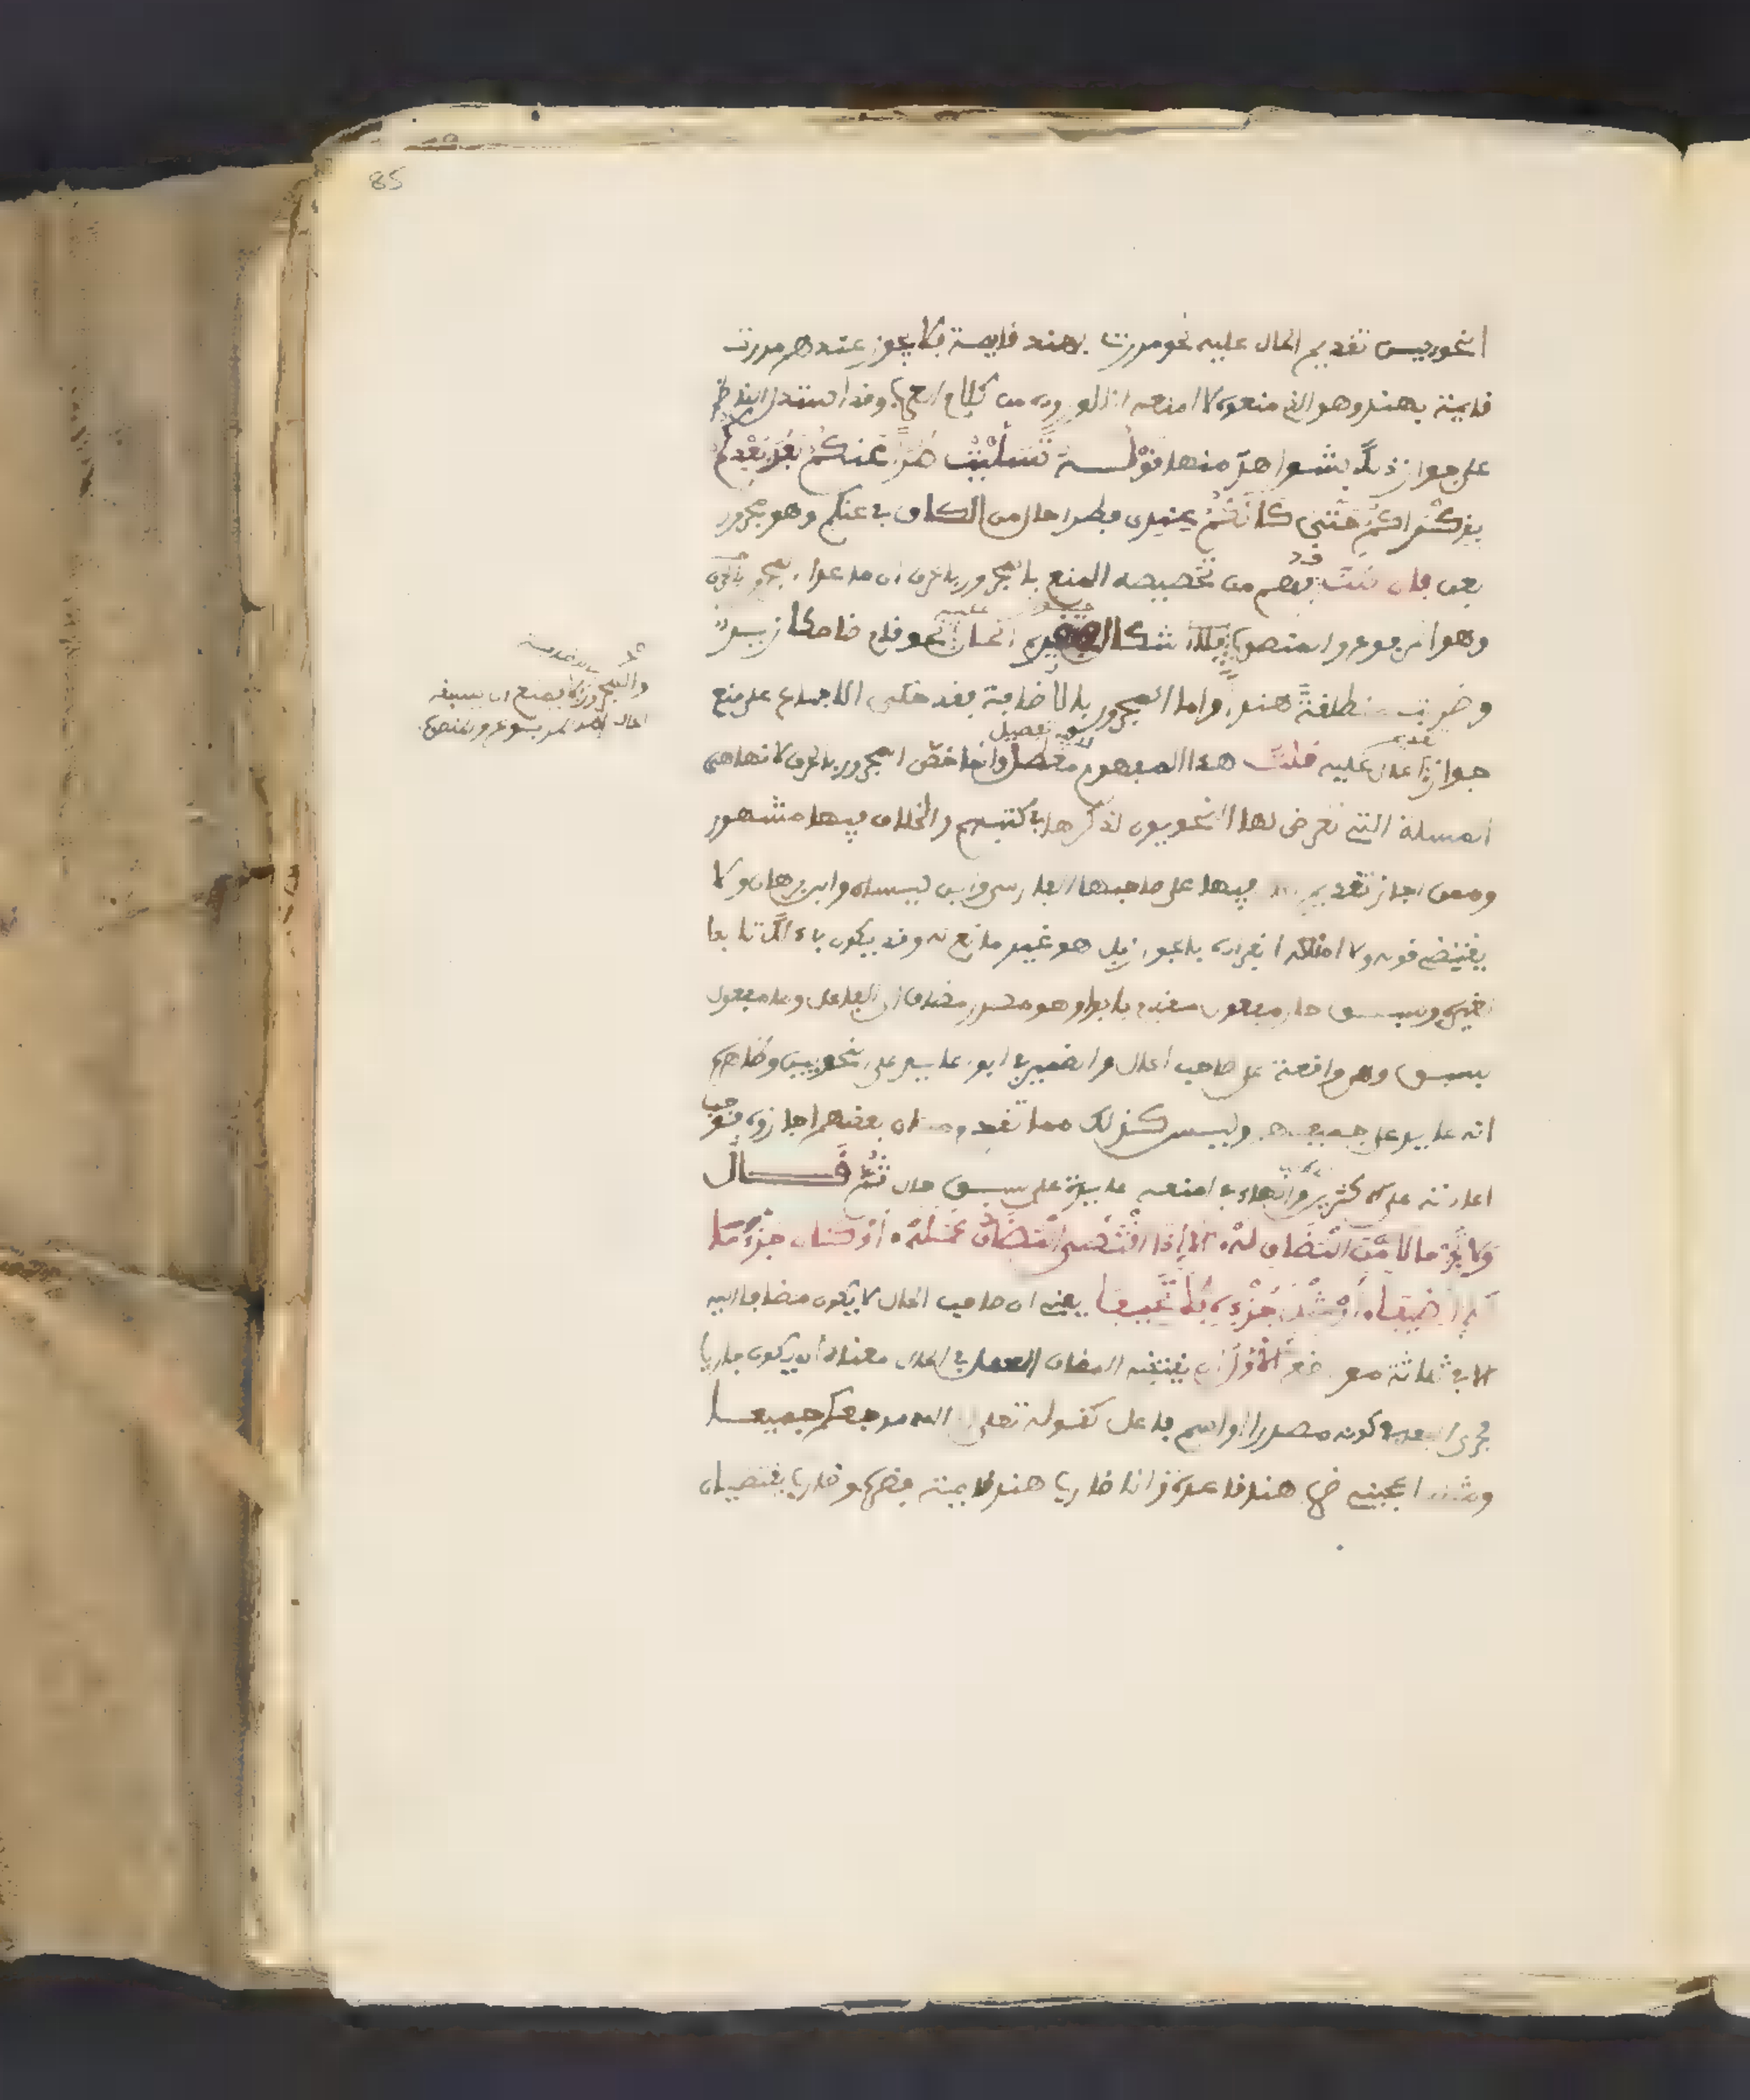 85
النحويين تقديم الحال عليه نحو مررت بهند قايمة فلا يجوز عندهم مررت
قايمة بهند وهو الذي منعوه لا امنعه اذ قد ورد من كلام العرب وقد استدل الناظم
على جواز ذلك بشواهد منها قوله تسليت طرا عنكم بعد بعدكم
بذكراكم حتى كانكم عندي فطرا حال من الكاف في عنكم وهو مجرور
بعن فان قلت فهم من تخصيصه المنع بالمجرور بالحرف ان ما عدا المجرور بالحرف
وهو المرفوع والمنصوب فلا اشكال في جواز تقديم الحال عليه نحو قام ضاحكا زيد
وضربت منطلقة هند واما المجرور بالاضافة فقد حكى الاجماع على منع
جواز تقديم الحال عليه قلت هذا المفهوم فيه تفصيل وانما خص المجرور بالحرف لانها هي
المسلة التي تعرض لها النحويون لذكرها في كتبهم والخلاف فيها مشهور
وممن اجاز تقديم الحال فيها على صاحبها الفارسي وابن كيسان وابن برهان ولا
يقتضي قوله ولا امنعه انفراده بالجواز بل هو غير مانع له وقد يكون في ذلك تابعا
لغيره وسبق حال مفعول مقدم بابوا وهو مصدر مضاف الى الفاعل وما مفعول
بسبق وهي واقعة على صاحب الحال والضمير في ابوا عايد على النحويين وظاهره
انه عايد على جميعهم وليس كذلك مما تقدم من ان بعضهم اجازوه فتوجب
اعادته على الاكثرين والهاء في امنعه عايدة على سبق حال ثم قال
ولا تجز حالا من المضاف له الا اذا اقتضى المضاف عمله او كان جزء ما
له اضيفا او مثل جزءه فلا تحيفا يعني ان صاحب الحال لا يكون مضافا اليه
الا في ثلاثة مواضع الاول ان يقتضي المضاف العمل في الحال معناه ان يكون جاريا
مجرى الفعل في كونه مصدرا او اسم فاعل كقوله تعلى اليه مرجعكم جميعا
ومثله اعجبني ضرب هند قاعدة وانا ضارب هند قايمة فضرب وضارب يقتضيان
والمجرور بالاضافة